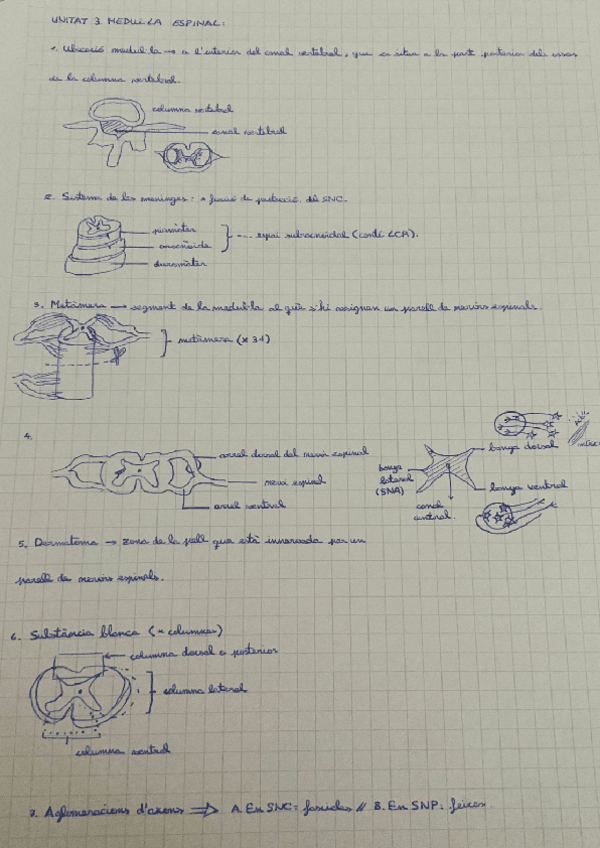 UNITAT 3. MEDUL·LA ESPINAL:
1. Ubicació medul·la → a l'interior del canal vertebral, que es situa a la part posterior dels ossos
de la columna vertebral.
columna vertebral
canal vertebral
2. Sistema de les meninges: funció de protecció del SNC.
piamàter
aracnoide
duramàter
espai subaracnoidal (conté LCR).
3. Metàmera → segment de la medul·la al què s'hi assignan un parell de nervis espinals.
metàmera (x 31)
4.
arrel dorsal del nervi espinal
nervi espinal
arrel ventral
banya dorsal
banya lateral (SNA)
banya ventral
canal central.
5. Dermatoma → zona de la pell que està innervada per un
parell de nervis espinals.
6. Substància blanca (= columnes)
columna dorsal o posterior
columna lateral
columna ventral
7. Aglomeracions d'axons ⇒ A. En SNC: fascicles // B. En SNP: feixos.